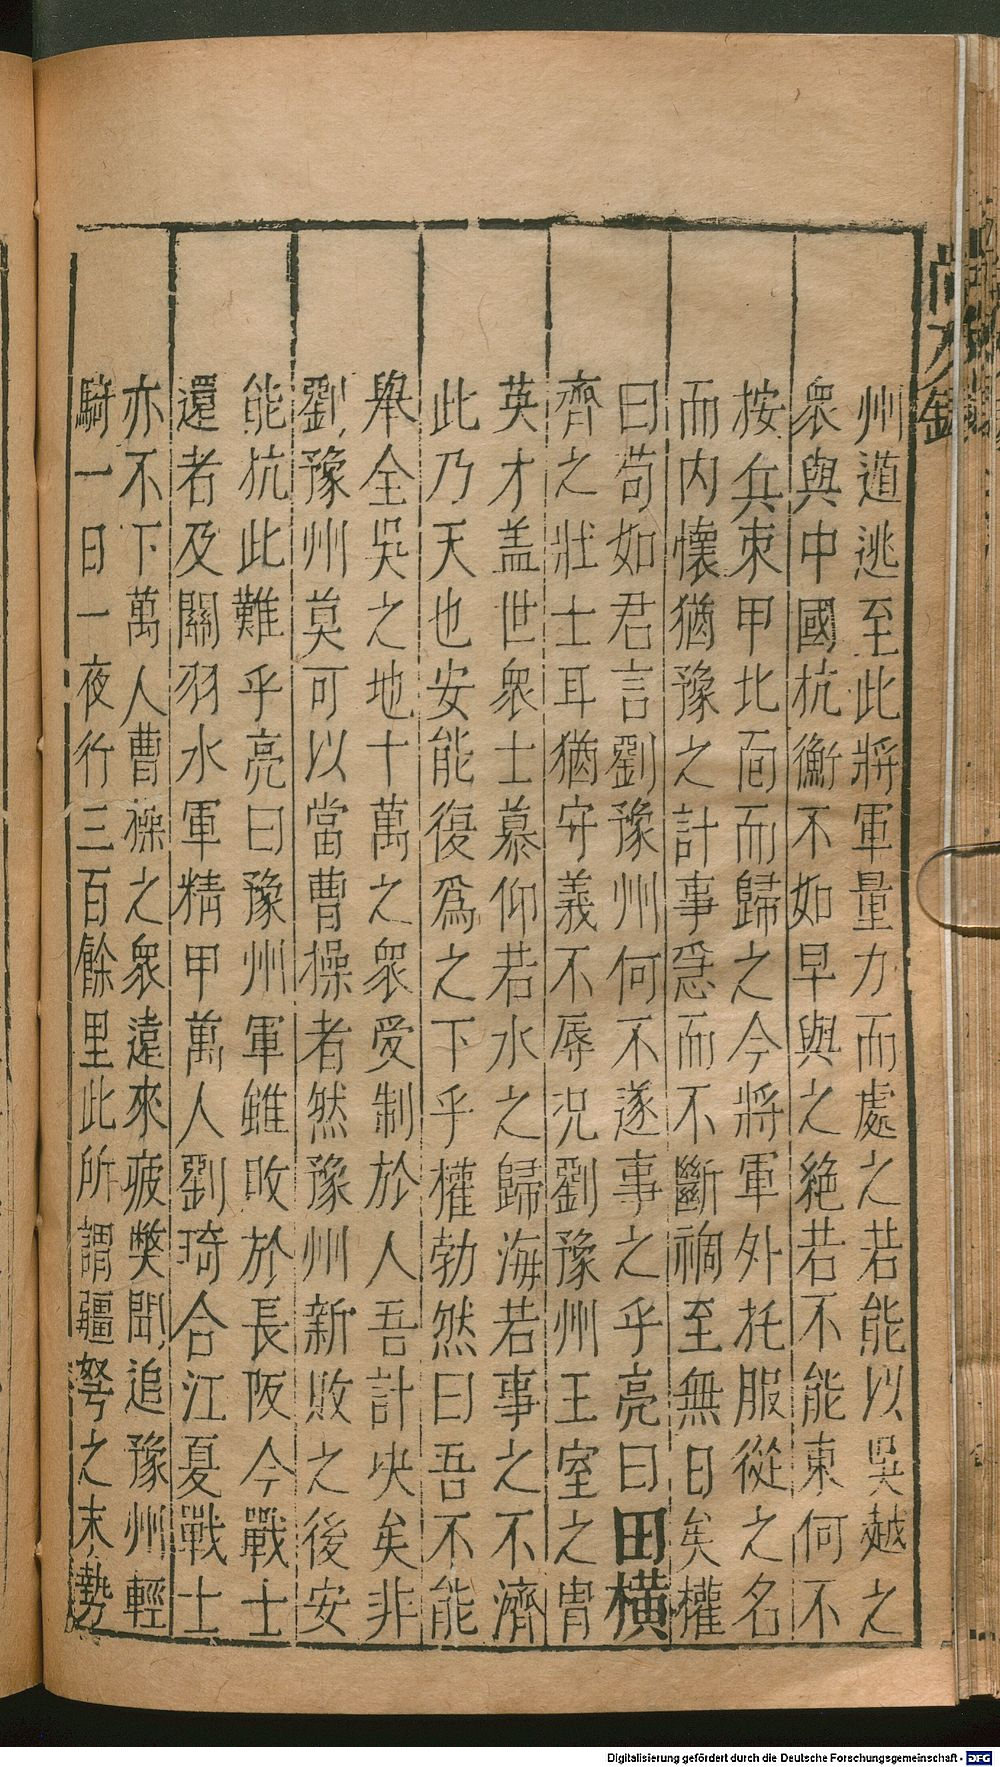 州遁逃至此將軍量力而處之若能以吳越之
衆與中國杭衡不如早與之絶若不能東何不
按兵束甲北靣而歸之今將軍外托服從之名
而内懷猶豫之計事急而不斷禍至無日矣權
曰苟如君言劉豫州何不遂事之乎亮曰田横
齊之壯士耳猶守義不辱况劉豫州王室之胄
英才盖世衆士慕仰若水之歸海若事之不濟
此乃天也安能復爲之下乎權勃然曰吾不能
舉全吳之地十萬之衆受制於人吾計决矣非
劉豫州莫可以當曹操者然豫州新敗之後安
能抗此難乎亮曰豫州軍雖敗於長阪今戰士
還者及關羽水軍精甲萬人劉琦合江夏戰士
亦不下萬人曹操之衆遠來疲獘聞追豫州輕
騎一日一夜行三百餘里此所謂疆弩之末勢
Digitalisierung gefördert durch die Deutsche Forschungsgemeinschaft - DFG